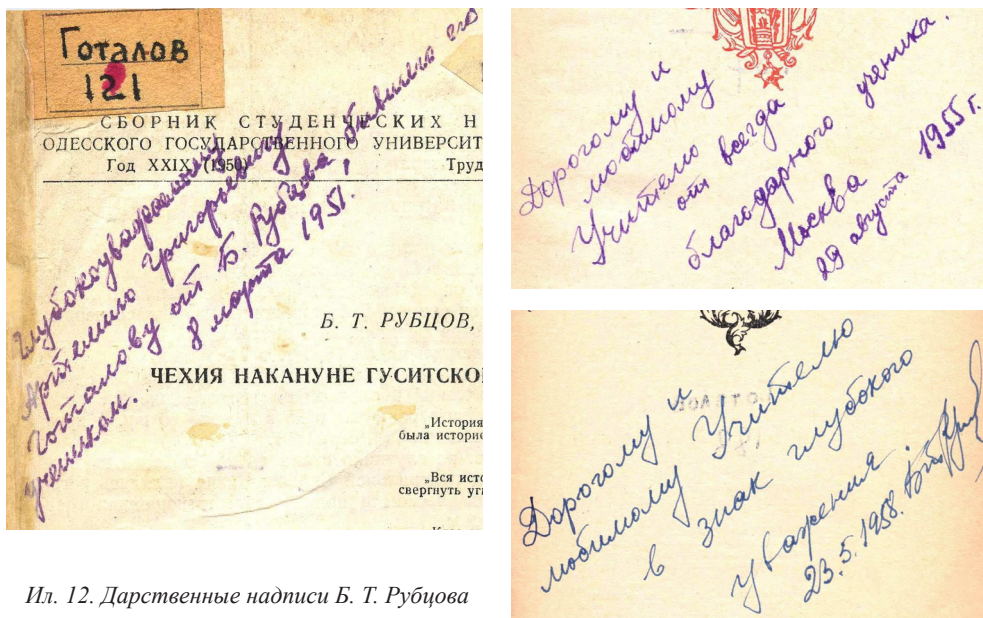 Готалов
121
СБОРНИК СТУДЕНЧЕСКИХ Н
ОДЕССКОГО ГОСУДАРСТВЕННОГО УНИВЕРСИТ
Год XXIX (1950) Труд
Глубокоуважаемому
Артемию Григорьевичу
Готалову от Б. Рубцова, бывшего его
учеником.
8 марта 1951.
Б. Т. РУБЦОВ,
ЧЕХИЯ НАКАНУНЕ ГУСИТСКО
„История
была историе
„Вся исто
свергнуть уг
Дорогому и
любимому
Учителю
от всегда
благодарного ученика.
Москва
29 августа 1955 г.
Дорогому и
любимому Учителю
в знак глубокого
уважения
23.5.1958.
Ил. 12. Дарственные надписи Б. Т. Рубцова